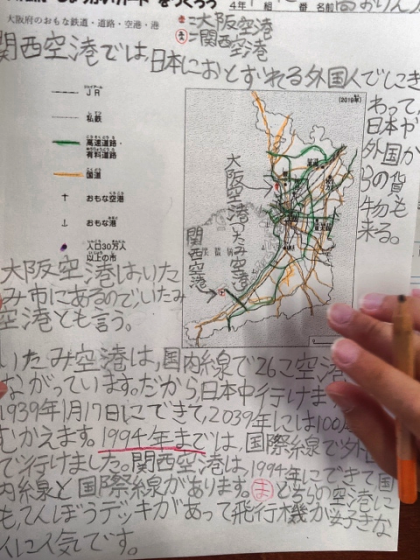 4年 組 番 名前
大阪府のおもな鉄道・道路・空港・港
=大阪空港
=関西空港
関西空港では、日本におとずれる外国人でにき
わって、
日本や
外国か
らの貨
物も
来る。
(2016年)
JR
私鉄
高速道路・
有料道路
国道
おもな空港
おもな港
人口30万人
以上の市
大阪空港(いたみ空港)
関西空港
大阪空港はいた
み市にあるので、いたみ
空港とも言う。
いたみ空港は、国内線で26こ空港
ながっています。だから日本中行けま
1939年1月17日にできて、2039年には100
むかえます。1994年まで は、国際線で外
で行けました。関西空港は、1994年にできて国
内線と国際線があります。ま どちらの空港に
も、てんぼうデッキがあって飛行機が好きな
人に人気です。